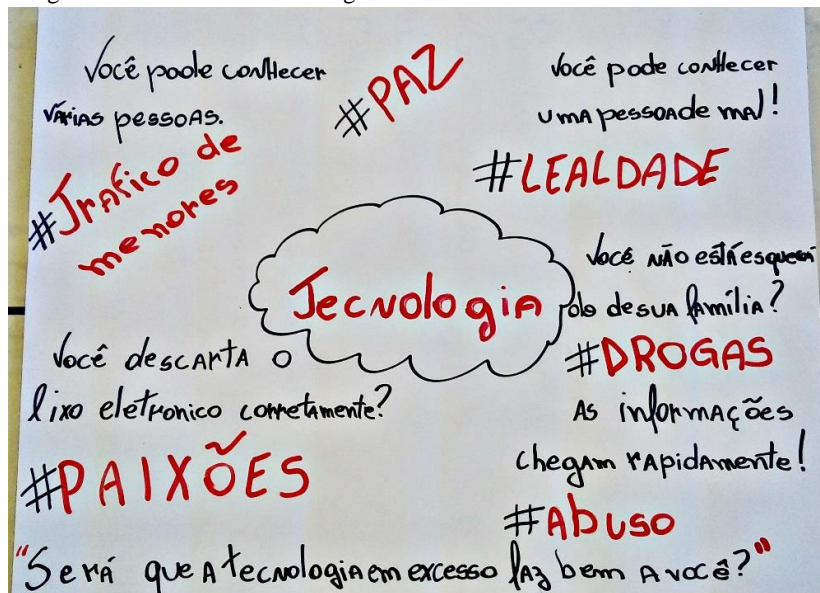 Você pode conhecer
várias pessoas.
#PAZ
Você pode conhecer
uma pessoa de mal!
#Trafico de
menores
#LEALDADE
Tecnologia
Você não está esqueci
do de sua família?
#DROGAS
Você descarta o
lixo eletronico corretamente?
As informações
chegam rapidamente!
#PAIXÕES
#Abuso
"Será que a tecnologia em excesso faz bem a você?"